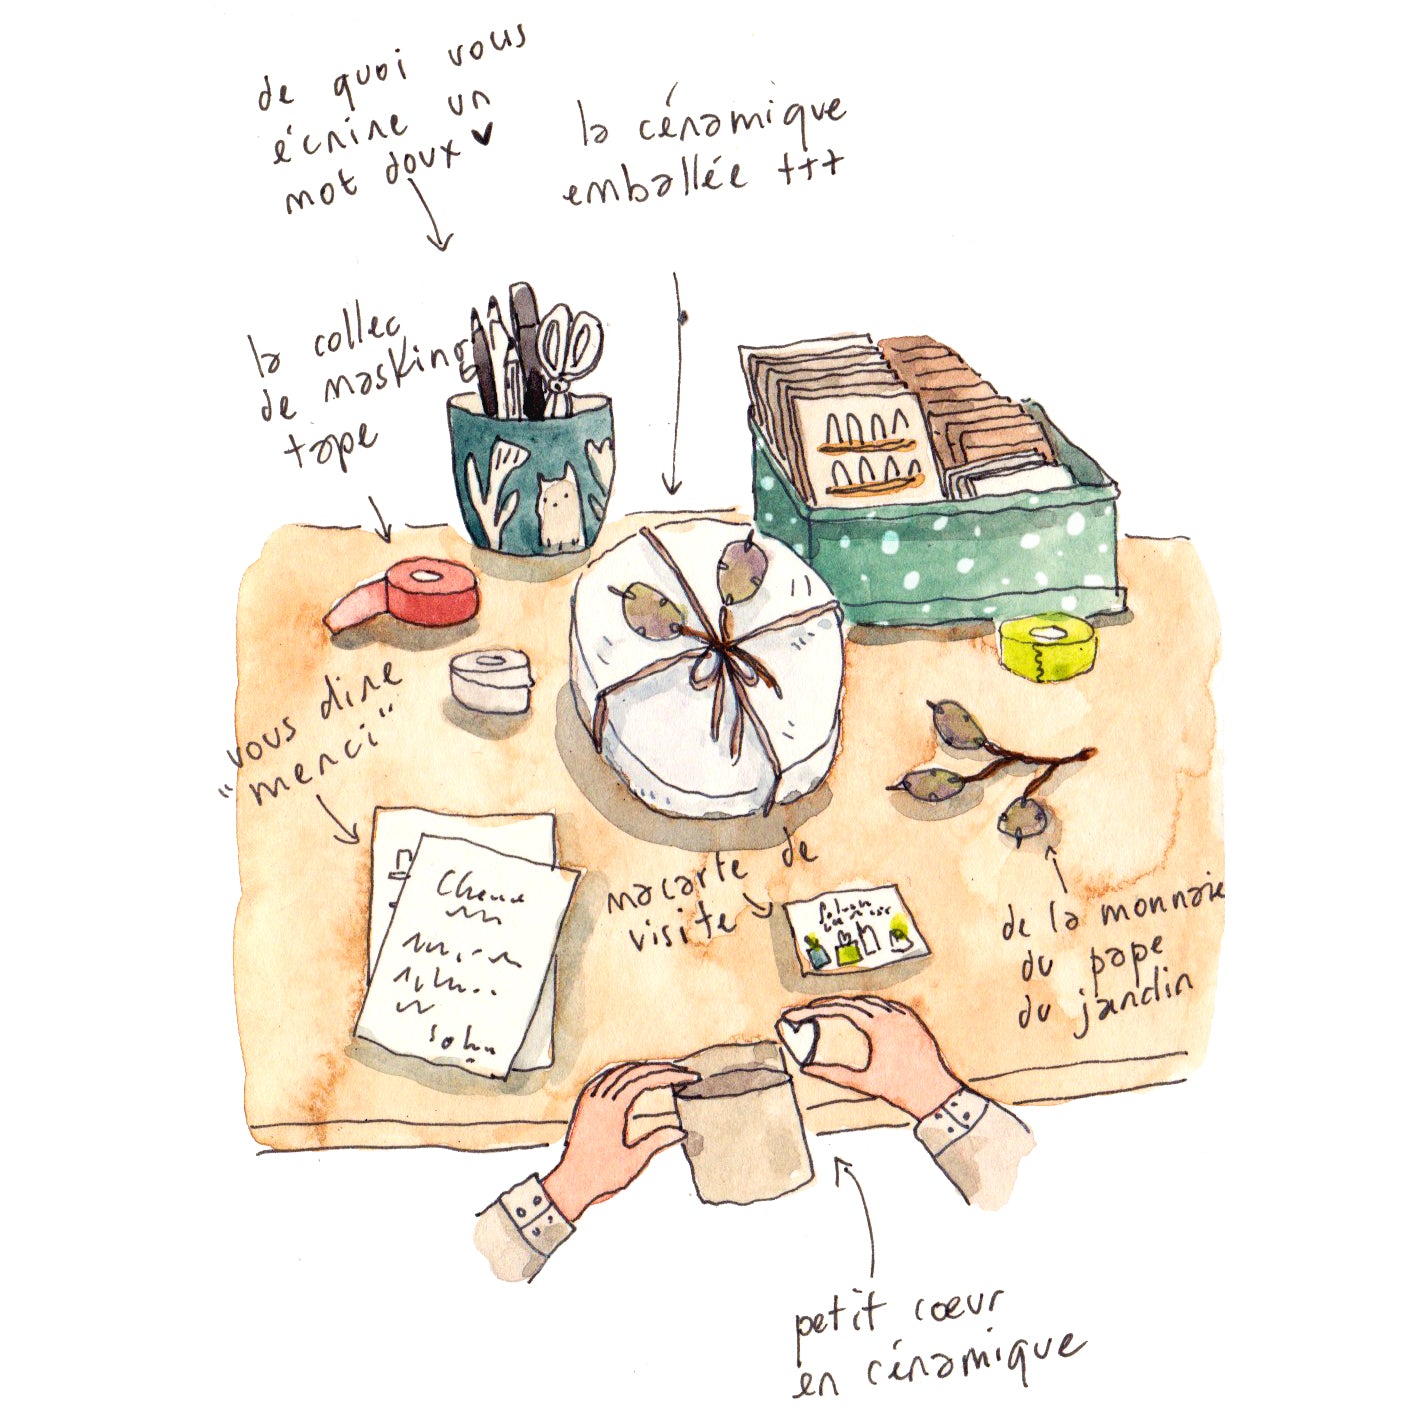 de quoi vous
écrire un
mot doux ♥
la céramique
emballée +++
la collec
de masking
tape
vous dire
"merci"
ma carte de
visite
de la monnaie
du pape
du jardin
petit cœur
en céramique